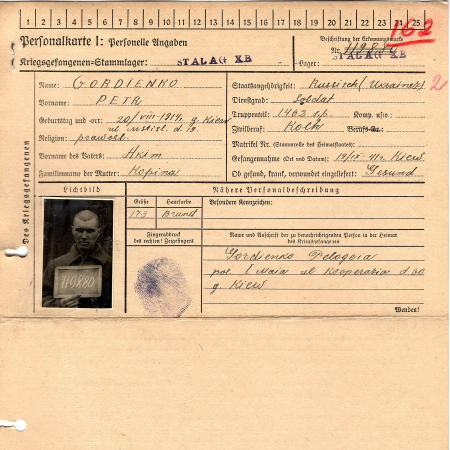 1 2 3 4 5 6 7 8 9 10 11 12 13 14 15 16 17 18 19 20 21 22 23 24 25
162
Personalkarte I: Personelle Angaben
Kriegsgefangenen-Stammlager: STALAG XB
Beschriftung der Erkennungsmarke
Nr. 119880
Lager: STALAG XB
Des Kriegsgefangenen
Name: GORDIENKO
Vorname: PETR
Geburtstag und -ort: 20/VIII-1914. g. Kiew
Religion: prawosl.
Vorname des Vaters: Akim
Familienname der Mutter: Kopina
Staatsangehörigkeit: Russisch (Ukrainer) 2
Dienstgrad: Soldat
Truppenteil: 1463 s.p. Komp. usw.:
Zivilberuf: Koch Berufs-Gr.:
Matrikel Nr. (Stammrolle des Heimatstaates):
Gefangennahme (Ort und Datum): 19/IX-41. Kiew
Ob gesund, krank, verwundet eingeliefert: Gesund
Lichtbild
119880
Nähere Personalbeschreibung
Größe Haarfarbe Besondere Kennzeichen:
173 Brunet
Fingerabdruck
des rechten! Zeigefingers
Name und Anschrift der zu benachrichtigenden Person in der Heimat
des Kriegsgefangenen
Gordienko Pelogeia
pos. 1 Maia ul Kooperazia d 60
g. Kiew
Wenden!